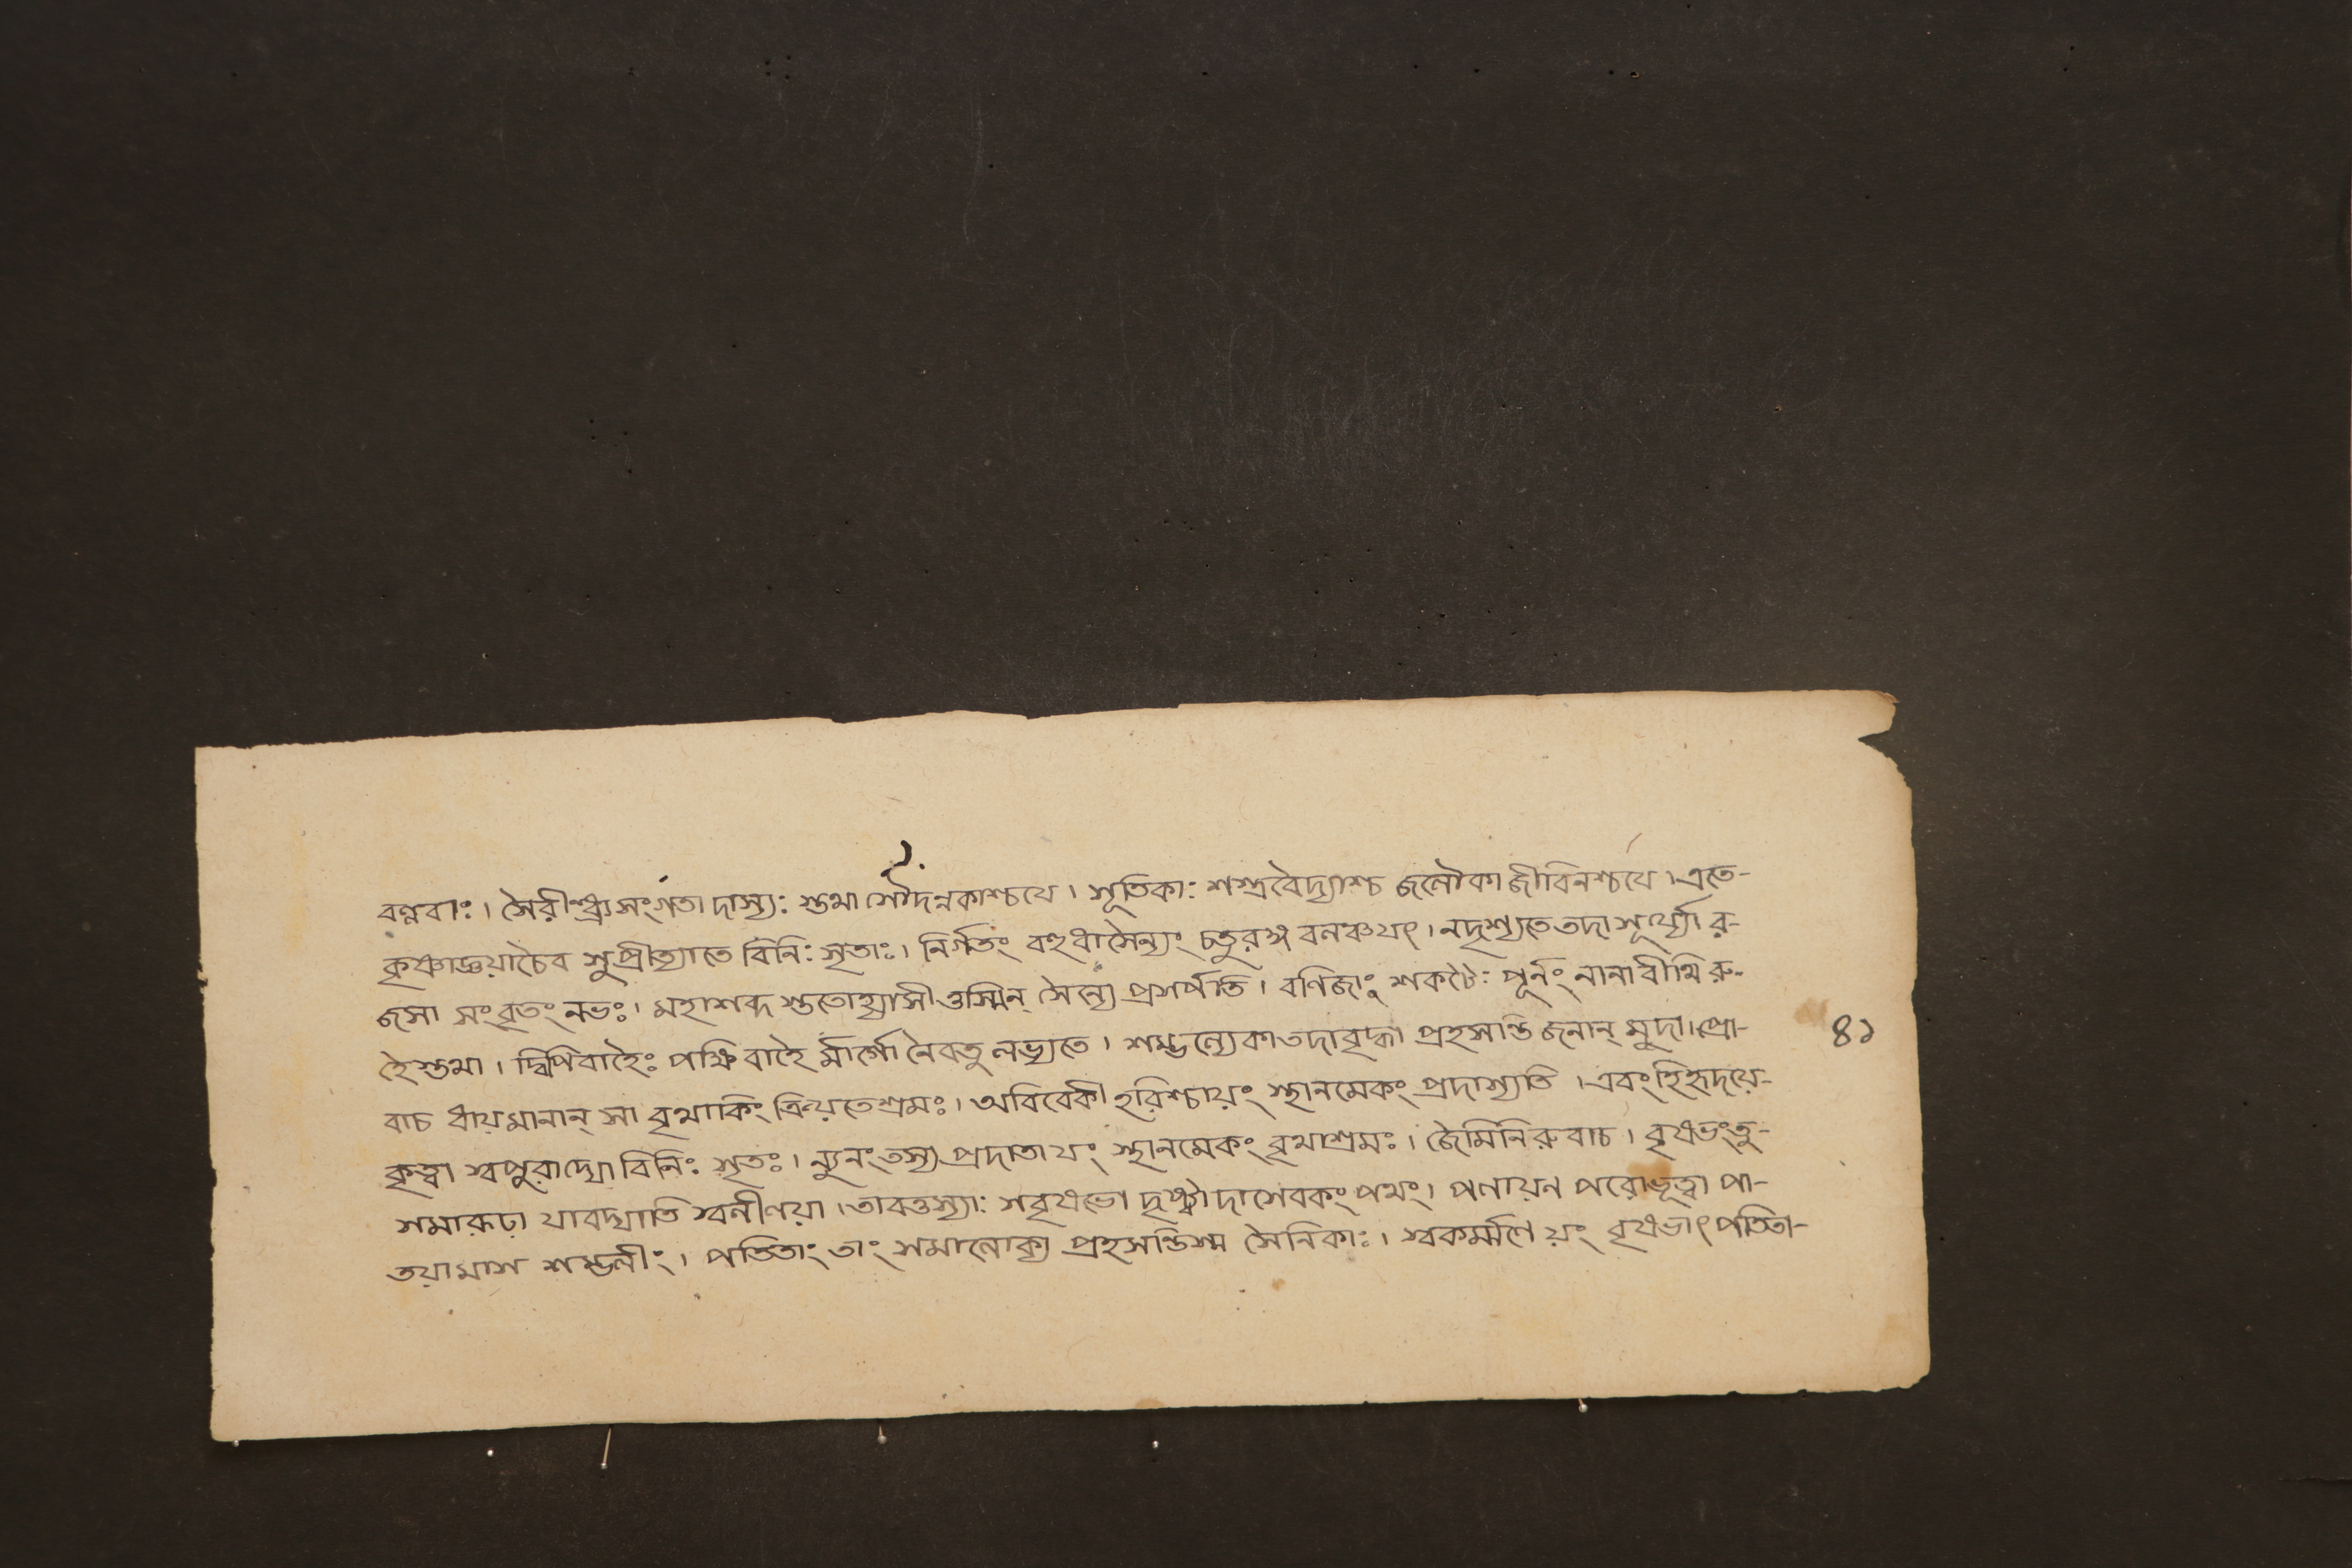 বল্লবাঃ। সৈরীন্ধ্র্যসংগতা দাস্যঃ শুমা সৌদন্নকাশ্চযে। সূতিকাঃ শস্ত্রবৈদ্যাশ্চ জলৌকা জীবিনশ্চযে। এতে-
কৃষ্ণাজ্ঞয়াচৈব সুপ্রীত্যাতে বিনিঃ সৃতাঃ। নির্গতং বহুধা সৈন্যং চতুরঙ্গ বলঞ্চযৎ। নদৃশ্যতে তদা সূর্য্যো র-
জসা সংবৃতং নভঃ। মহাশব্দ স্ততোহ্যাসীত্তস্মিন্ সৈন্যে প্রসর্পতি। বণিজাং শকটৈঃ পূর্নং নানাবীথি রু-
হৈস্তথা। দ্বিপিবাহৈঃ পক্ষিবাহৈ র্মার্গো নৈবতু লভ্যতে। শম্ভল্যেকা তদাবৃদ্ধা প্রহসন্তি জনান্ মুদা। প্রো-
বাচ ধায়মানান্ সা বৃথাকিং ক্রিয়তেশ্রমঃ। অবিবেকী হরিশ্চায়ং স্থানমেকং প্রদাস্যতি। এবংহিহৃদয়ে-
কৃত্বা স্বপুরাদ্যো বিনিঃ সৃতঃ। ন্যুনং তস্য প্রদাতা যং স্থানমেকং বৃথাশ্রমঃ। জৈমিনিরুবাচ। বৃষভংতু-
সমারূঢা যাবদ্যাতি স্বলীলয়া। তাবত্তস্যাঃ সবৃষভো দৃষ্ট্বাদাসেবকং পথং। পলায়ন পরোভূত্বা পা-
তয়ামাস শম্ভলীং। পতিতাং তাং সমালোক্য প্রহসন্তিস্ম সৈনিকাঃ। স্বকর্ম্মণে য়ং বৃষভাৎ পতিতা-
৪১